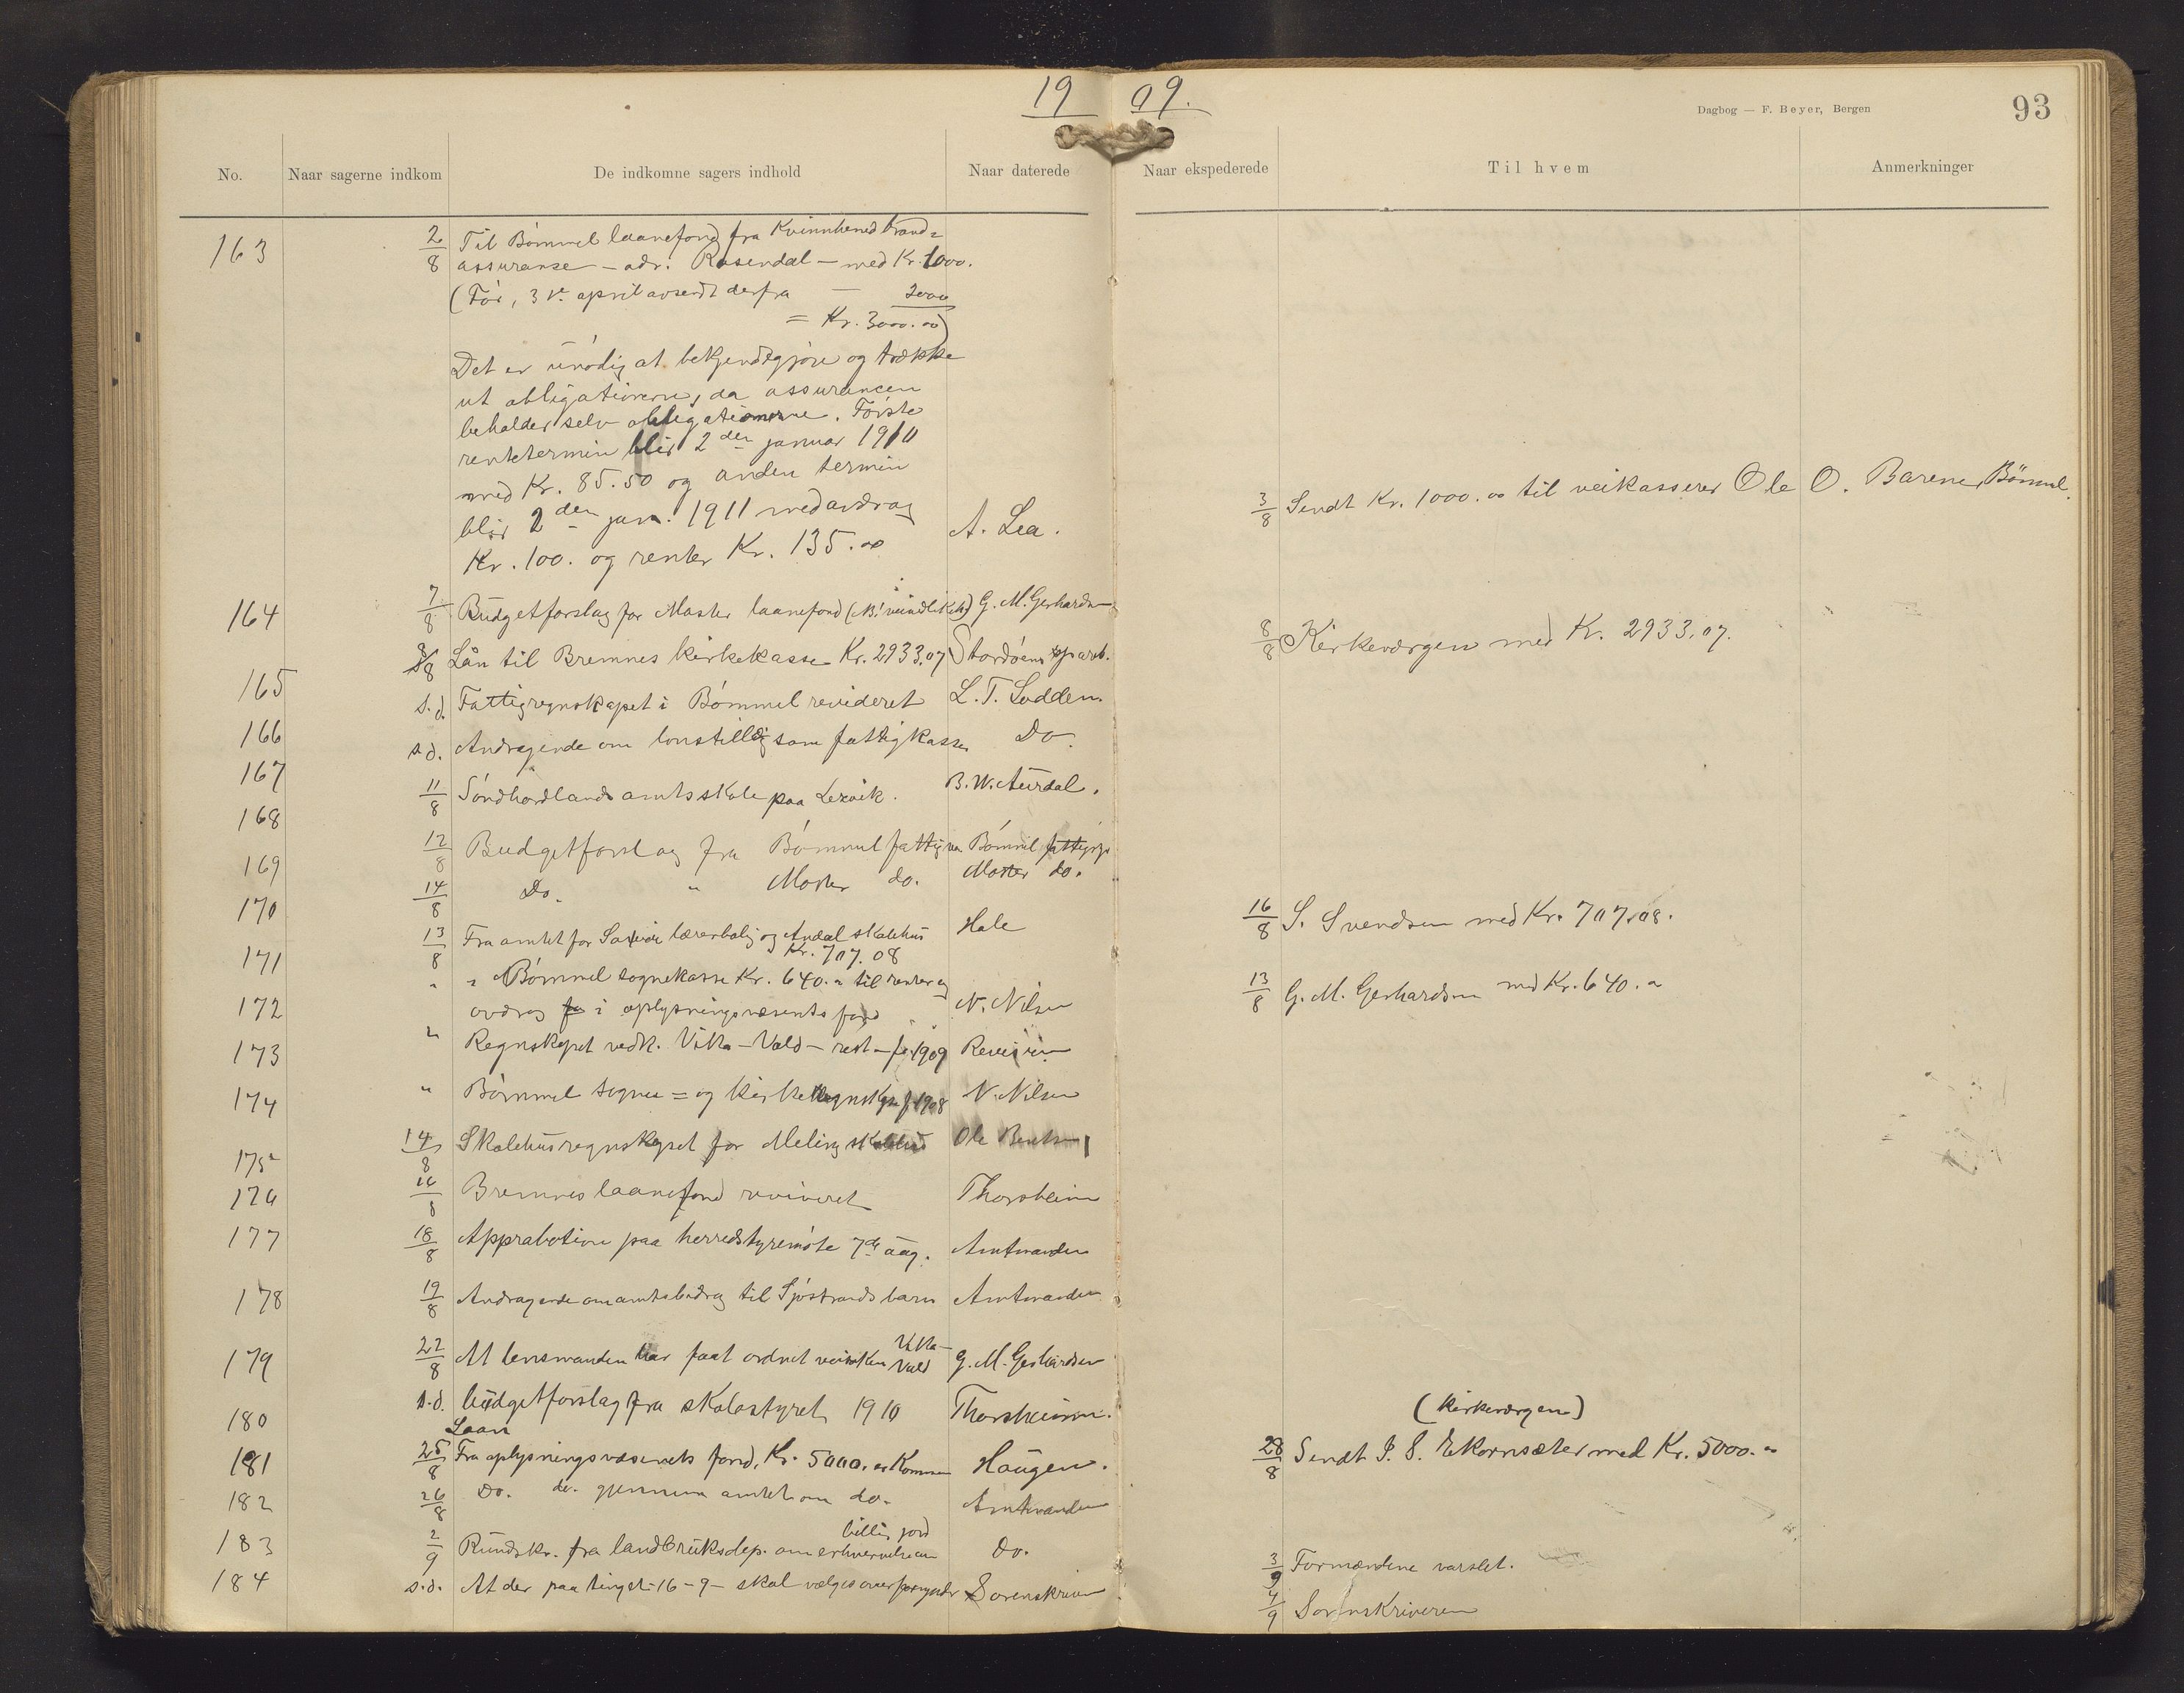 19 09.
Dagbog — F. Beyer, Bergen
93
No. Naar sagerne indkom De indkomne sagers indhold Naar daterede Naar ekspederede Til hvem Anmerkninger
163 2/8 Til Bømmel laanefond fra Kvinnhered brand=
assuranse – adr. Rosendal – med Kr. 1000.
(Før, 3 april avsendt derfra — 2000
= Kr. 3000.00)
Det er unødig at bekjendtgjøre og trække
ut obligationerne, da assurancen
beholder selv obligationerne. Første
rentetermin blir 2den januar 1910
med Kr. 85.50 og anden termin
blir 2den jan. 1911 med avdrag
Kr. 100. og renter Kr. 135.00 A. Lea.
3/8 Sendt Kr. 1000.00 til veikasserer Ole O. Barene, Bömmel.
164 7/8 Budgetforslag for Moster laanefond G. M. Gerhardsen
165 8/8 Lån til Bremnes kirkekasse Kr. 2933,07 Stordöens spareb.
8/8 Kirkeværgen med Kr. 2933,07.
166 s.d. Fattigregnskapet i Bömmel revideret L. T. Lodden.
167 s.d. Andragende om lønstillæg som fattigkasser Do.
168 11/8 Söndhordlands amtsskole paa Lervik. B. W. Aurdal.
169 12/8 Budgetforslag fra Bömmel fattigv. Bömmel fattigv.
170 14/8 Do. " Moster do. Moster do.
171 13/8 Fra amtet for lærerbolig og skolehus Hole
Kr. 707.08
16/8 S. Svendsen med Kr. 707.08.
172 " " Bömmel sognekasse Kr. 640. " til renter og
avdrag i oplysningsvæsenets fond N. Nilsen
13/8 G. M. Gerhardsen med Kr. 640. "
173 " Regnskapet vedk. Vika – Vald – rest – f. 1909 Revisjon
174 " Bömmel sogne = og kirkeregnskap f. 1908 N. Nilsen
175 14/8 Skolehusregnskapet for Meling skolehus Ole Bentsen
176 16/8 Bremnes laanefond revideret Thorsheim
177 18/8 Approbation paa herredstyremöte 7de aug. Amtmanden
178 19/8 Andragende om amtsbidrag til Sjöstrands barn Amtmanden
179 22/8 At lensmanden har faat ordnet Vika– Vald G. M. Gerhardsen
180 s.d. budgetforslag fra skolestyret 1910 Thorsheim.
181 25/8 Laan Fra oplysningsvæsenets fond, Kr. 5000. er kommen Haugen.
(kirkeværgen)
28/8 Sendt P. S. Ekornsæter med Kr. 5000. "
182 26/8 Do. do. gjennem amtet om do. Amtmanden
183 2/9 Rundskr. fra landbruksdep. om erhvervelse av billig jord Do.
3/9 Formændene varslet.
184 s.d. At der paa tinget 16–9– skal vælges overformynder Sorenskriver
4/9 Sorenskriveren